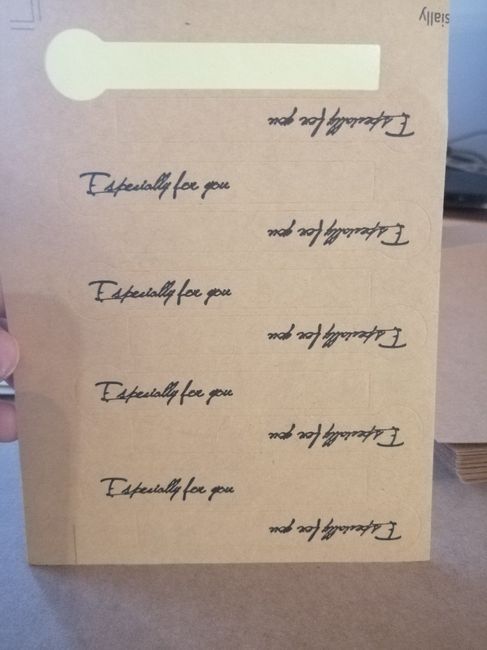 sially
Especially for you
Especially for you
Especially for you
Especially for you
Especially for you
Especially for you
Especially for you
Especially for you
Especially for you